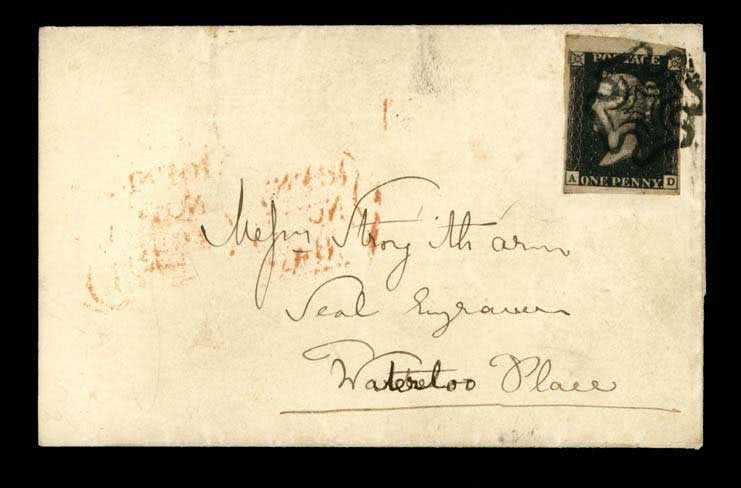 POSTAGE
A ONE PENNY D
Messrs Strong i'th'arm
Seal Engravers
Waterloo Place